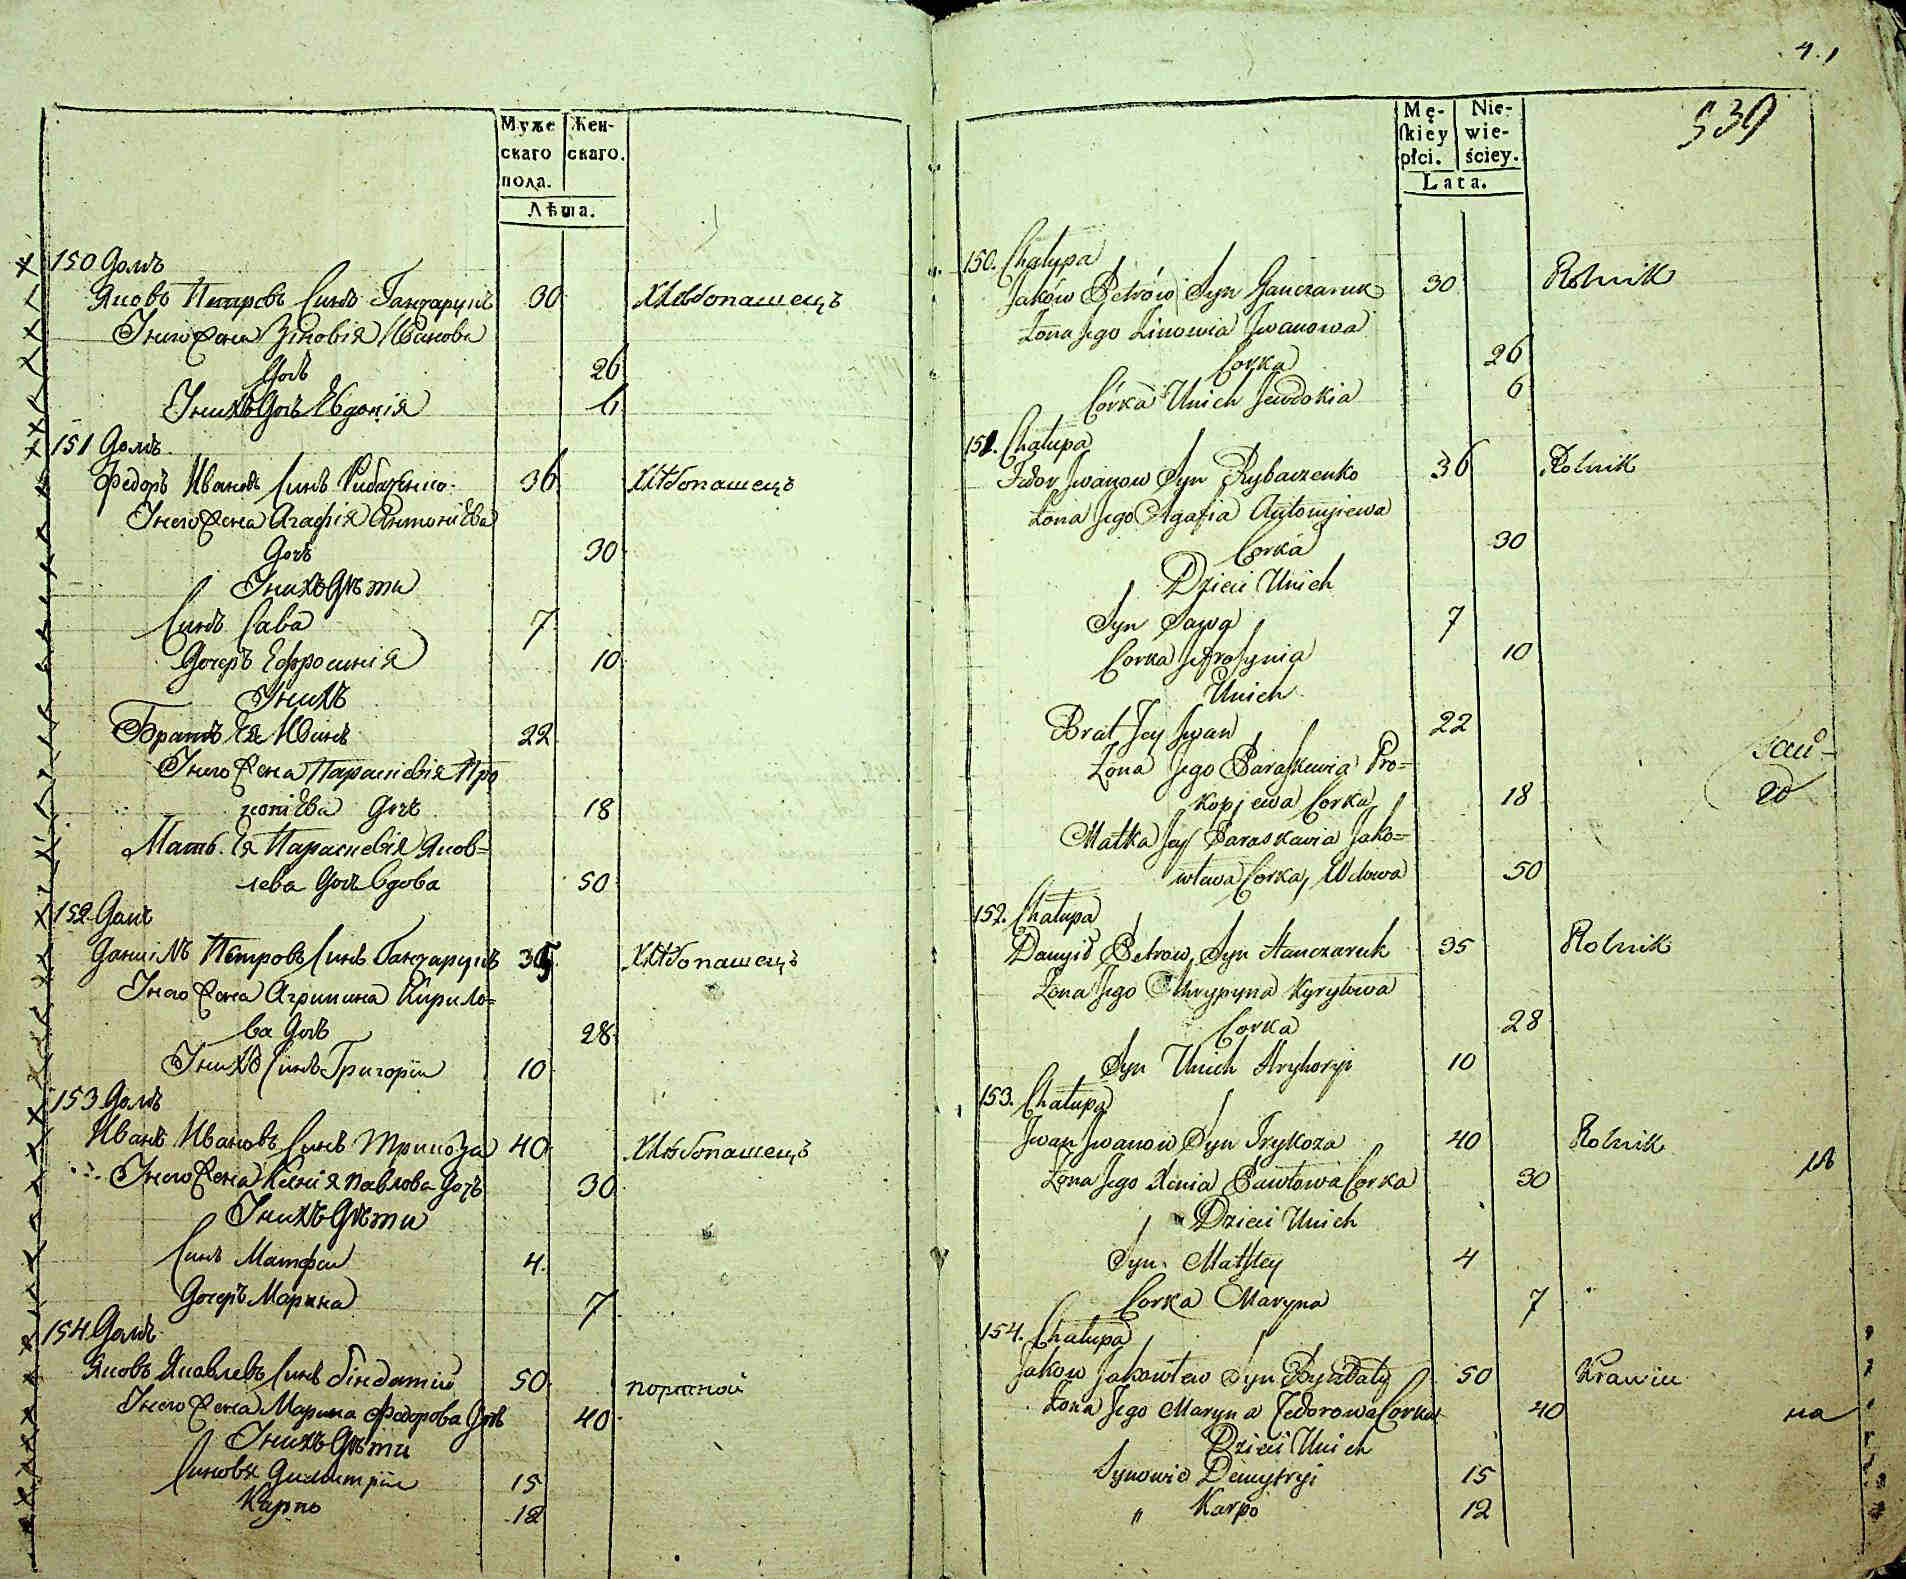 Муже
скаго
пола.
Жен-
скаго.
Лѣта.
150 Домъ
Яковъ Петровъ Синъ Ганчарукъ 30 хлѣбопашецъ
Унего Жена Зіновія Иванова
Доч 26
Унихъ Доч Евдокія 6
151 Домъ
Федоръ Ивановъ Синъ Рибаченко 36 хлѣбопашецъ
Унего Жена Агафія Антониева
Доч 30
Унихъ Дѣти
Синъ Сава 7
Дочеръ Ефросинія 10
Унихъ
Братъ Ея Иванъ 22
Унего Жена Параскевія Про
копіева Доч 18
Мать Ея Параскевія Яков-
лева Доч Вдова 50
152 Домъ
Даниілъ Петровъ Синъ Ганчарукъ 35 хлѣбопашецъ
Унего Жена Агрипина Кирило=
ва Доч 28
Унихъ Синъ Григорій 10
153 Домъ
Иванъ Ивановъ Синъ Трикоза 40 хлѣбопашецъ
Унего Жена Ксенія Павлова Доч 30
Унихъ Дѣти
Синъ Матфей 4
Дочеръ Марина 7
154 Домъ
Яковъ Яковлевъ Синъ 50 портной
Унего Жена Марина Федорова Доч 40
Унихъ Дѣти
Синовя Димитрій 15
Карпо 12
4.
539
Mę-
skiey
płci.
Nie-
wie-
ściey.
Lata.
150. Chałupa
Jaków Petrów Syn Ganczaruk 30 Rolnik
Żona Jego Zinowia Jwanowa
Corka 26
Córka Unich Jewdokia 6
151. Chałupa
Fedor Jwanow Syn Rybaczenko 36 Rolnik
Żona Jego Agafia Antonijewa
Corka 30
Dzieci Unich
Syn Sawa 7
Corka Jefrosynia 10
Unich
Brat Jey Jwan 22
Żona Jego Paraskewia Pro=
kopjewa Corka 18
Matka Jey Paraskewia Jako=
wlewa Corka, Wdowa 50
152. Chałupa
Danyił Petrow Syn Hanczaruk 35 Rolnik
Żona Jego Ahrypyna Kyryłowa
Corka 28
Syn Unich Hryhoryi 10
153. Chałupa
Jwan Jwanow Syn Trykoza 40 Rolnik
Żona Jego Xenia Pawłowa Corka 30
Dzieci Unich
Syn Matfey 4
Corka Maryna 7
154. Chałupa
Jakow Jakowlew Syn 50 Krawiec
Żona Jego Maryna Fedorowa Corka 40
na
Dzieci Unich
Synowie Demytryi 15
" Karpo 12